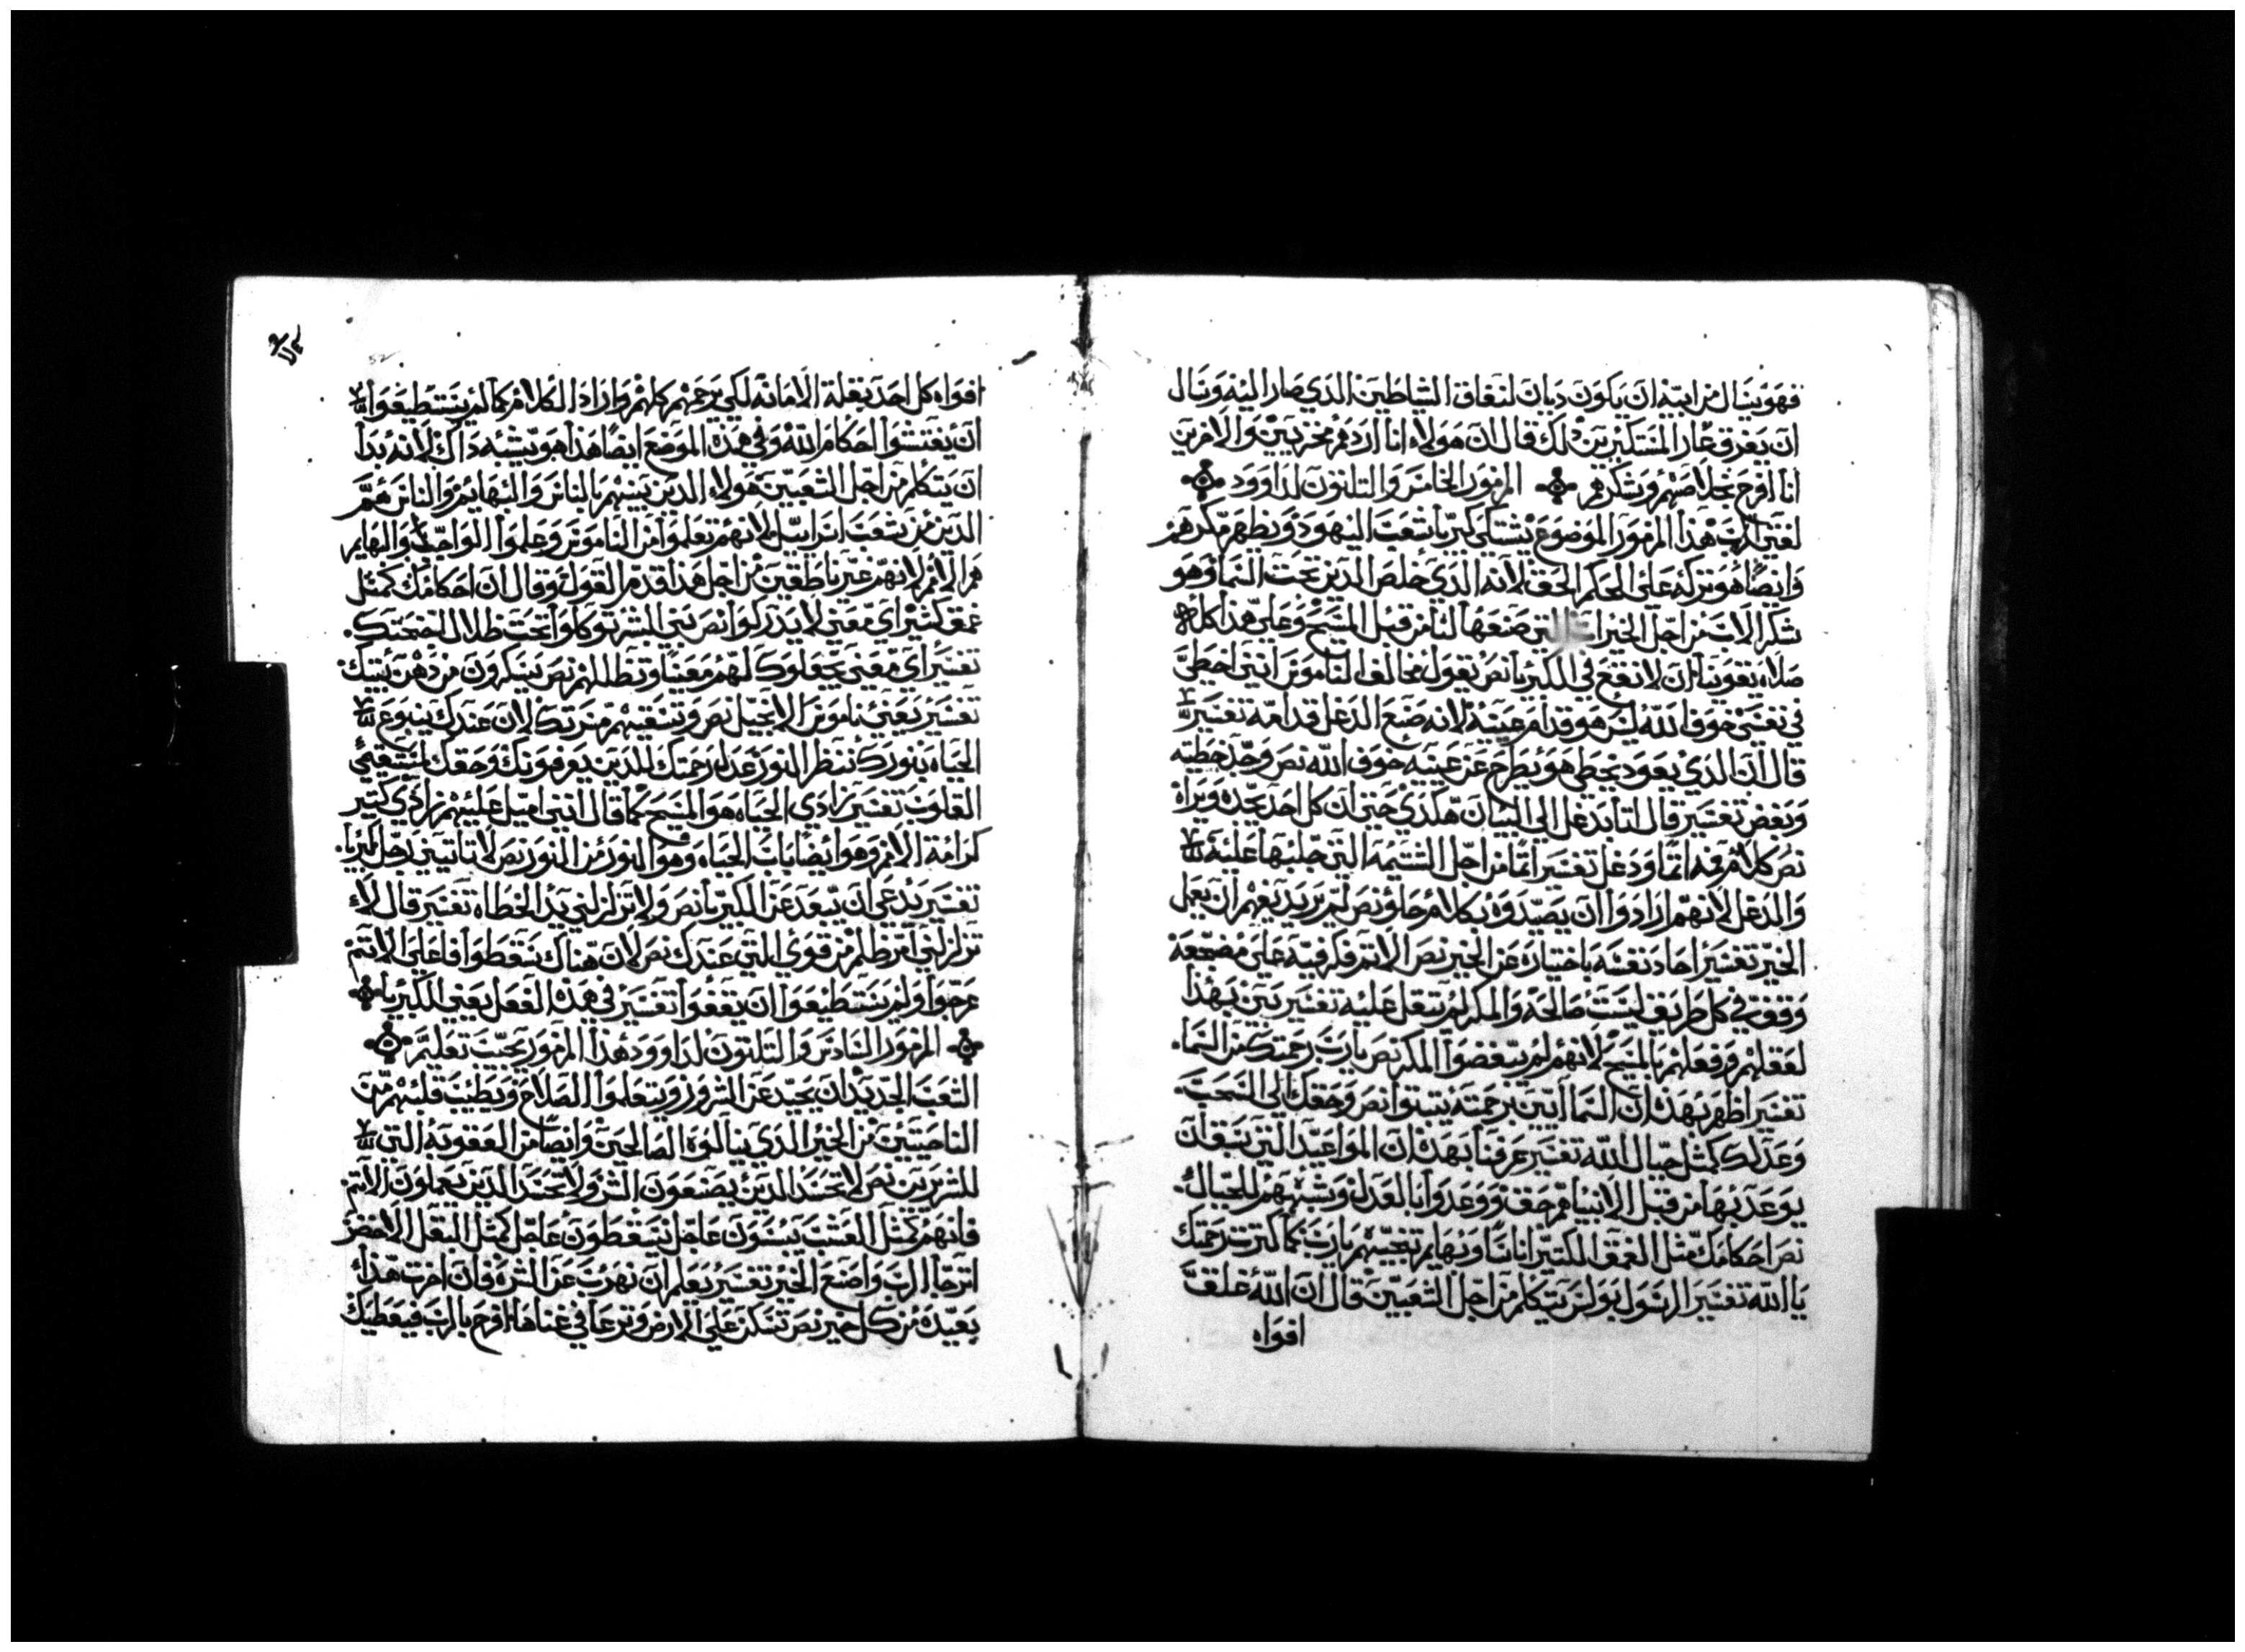 فهو ينال من ابيه ان يكون ديان لنفاق الشاطين الذي صار اليه ونال
ان يفرق عار المستكبرين ذلك قال لان هولاء انا اردهم مخزيين والاخرين
انا افرح بخلاصهم وشكرهم المزمور الخامس والتلتون لداوود
لغير الرب هذا المزمور الموضوع يشتكي كبريا شعب اليهود ويظهر مكرهم
وايضا هو تركه على الحكم الحق لانه الذي خلص الذين تحت السما وهو
شكر الاب من اجل الخيرات التي صنعها لنا من قبل المسيح وعلى هذا كله
صلاه يقوينا ان لا نقع في الكبريا نص يقول مخالف الناموس انني اخطي
في نفسي خوف الله ليس هو قدام عينيه لانه صنع الدغل قدامه تفسير
قال ان الذي يعود يخطي هو يطرح عن عينيه خوف الله نص وجد خطيته
وبغض تفسير قال لنا بدغل الى البيان هكذي حتى ان كل احد يجده ويراه
نص كلام فمه اتما ودغل تفسير اتما من اجل الشتيمه التي جلبها عليه
والدغل لانهم ارادوا ان يصيدوه بكلام حلو نص لم يريد يفهم ان يعمل
الخير تفسير احاد نفسه باختياره عن الخير نص الاتم فكر فيه على مضجعه
وقف في كل طريق ليست صالحه والمكر لم تبعل عليه تفسير بين بهذا
لعقلهم وفعلهم بالمسيح لانهم لم يبغضوا المكر نص يارب رحمتك من السما
تفسير اظهر بهذه ان السما ايتين برحمته يثبتوا نص وحقك الى السحب
وعدلك كمثل جبال الله تفسير عرفنا بهذه ان المواعيد التي سبق ان
يوعد بها من قبل الانبيا هم حق ووعدوا بالعدل وشبههم للجبال
نص احكامك مثل العمق الكتير اناسا وبهايم تنجيهم يارب كما كترت رحمتك
يا الله تفسير الرسول بولس يتكلم من اجل الشعبين قال ان الله غلق
افواه
افواه كل احد بقلة الامانه لكي يرحمهم كلهم واراد الكلام كما لم يستطيعوا
ان يفتشوا احكام الله وفي هذه الموضع ايضا هذا هو يشبه داك لانه بدا
ان يتكلم من اجل الشعبين هولاء الذين يشبهم بالناس والبهايم والناس هم
الذين من شعب اسراييل لانهم تعلموا من الناموس وعلموا الواجب والبهايم
هم الامم لانهم غير ناطقين من اجل هذا قدم القول وقال ان احكامك كمثل
عمق كثير اي معني لا يدركوا نص بني البشر توكلوا تحت ظلال اجنحتك
تفسير اي معني يجعلوك لهم معينا وتظللهم نص يسكرون من دهن بيتك
تفسير يعني ناموس الانجيل نص وتسقيهم من تك لان عندك ينبوع
الحياه بنورك ننظر النور عدل رحمتك للدين يعرفونك وحقك لمستقيمي
القلوب تفسير زادي الحياه هو المسيح كما قال انني اميل عليهم زادي كتير
كرامة الامم وهو ايضا باب الحياه وهو النور من النور نص لا تاتيني رجل لكبريا
تفسير يدعي ان يبعد عن الكبريا نص ولا تزلزلني يد الخطاه تفسير قال لا
تزلزلني من ظلم من قوي التي عندك نص لان هناك سقطوا فاعلي الاتم
خرجوا ولم يستطيعوا ان يقفوا تفسير في هذه الفعل يعني الكبريا
المزمور السادس والتلتون لداوود هذا المزمور يجيب تعليم
الشعب الجديد ان يحيد عن الشرور ويتعلموا الصلاح ويطيب قلبهم من
الناحيتين من الخير الذي ينالوه الصالحين وايضا من العقوبة التي
للشريرين نص لا تحسد الذين يصنعون الشر ولا تحسد الدين يعملون الاتم
فانهم كمثل العشب ييبسون عاجل يسقطون عاجل كمثل البقل الاخضر
اترجا الرب واصنع الخير تفسير يعلم ان نهرب عن الشره فان اخرت هذا
بعيده من كل خير نص تسكن على الارض وترعا في غناها افرح بالرب فيعطيك